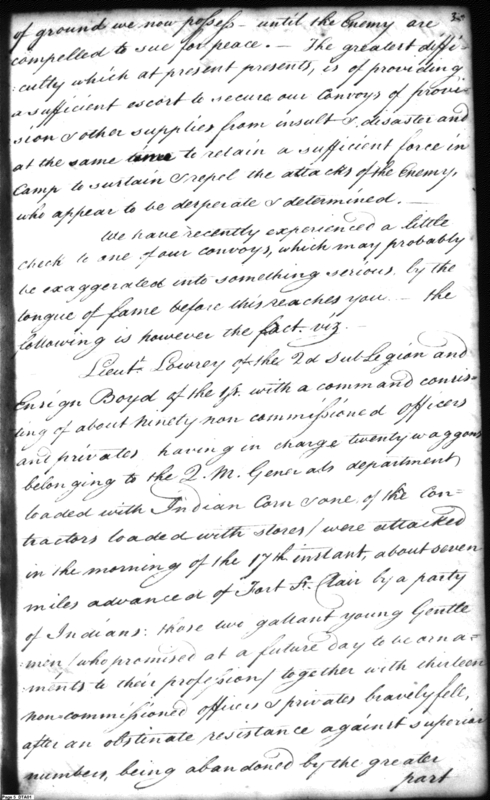 35
of ground we now possess - until the Enemy are
compelled to sue for peace. - The greatest diffi-
culty which at present presents, is of providing
a sufficient escort to secure our Convoys of provi-
sion & other supplies from insult & disaster and
at the same time to retain a sufficient force in
Camp to sustain & repel the attacks of the Enemy,
who appear to be desperate & determined. -
We have recently experienced a little
check to one of our convoys, which may probably
be exaggerated into something serious by the
tongue of fame before this reaches you - the
following is however the fact. viz -
Lieut. Lowrey of the 2d Sub Legion and
Ensign Boyd of the 1st. with a command consis-
ting of about Ninety non commissioned officers
and privates having in charge twenty waggons
belonging to the Q. M. Generals department
loaded with Indian Corn & one of the Con-
tractors loaded with stores/ were attacked
in the morning of the 17th instant, about seven
miles advanced of Fort St. Clair by a party
of Indians: those two gallant young Gentle
men /who promised at a future day to be orna-
ments to their profession/ together with thirteen
non-commissioned officers & privates bravely fell,
after an obstinate resistance against superior
numbers, being abandoned by the greater
part